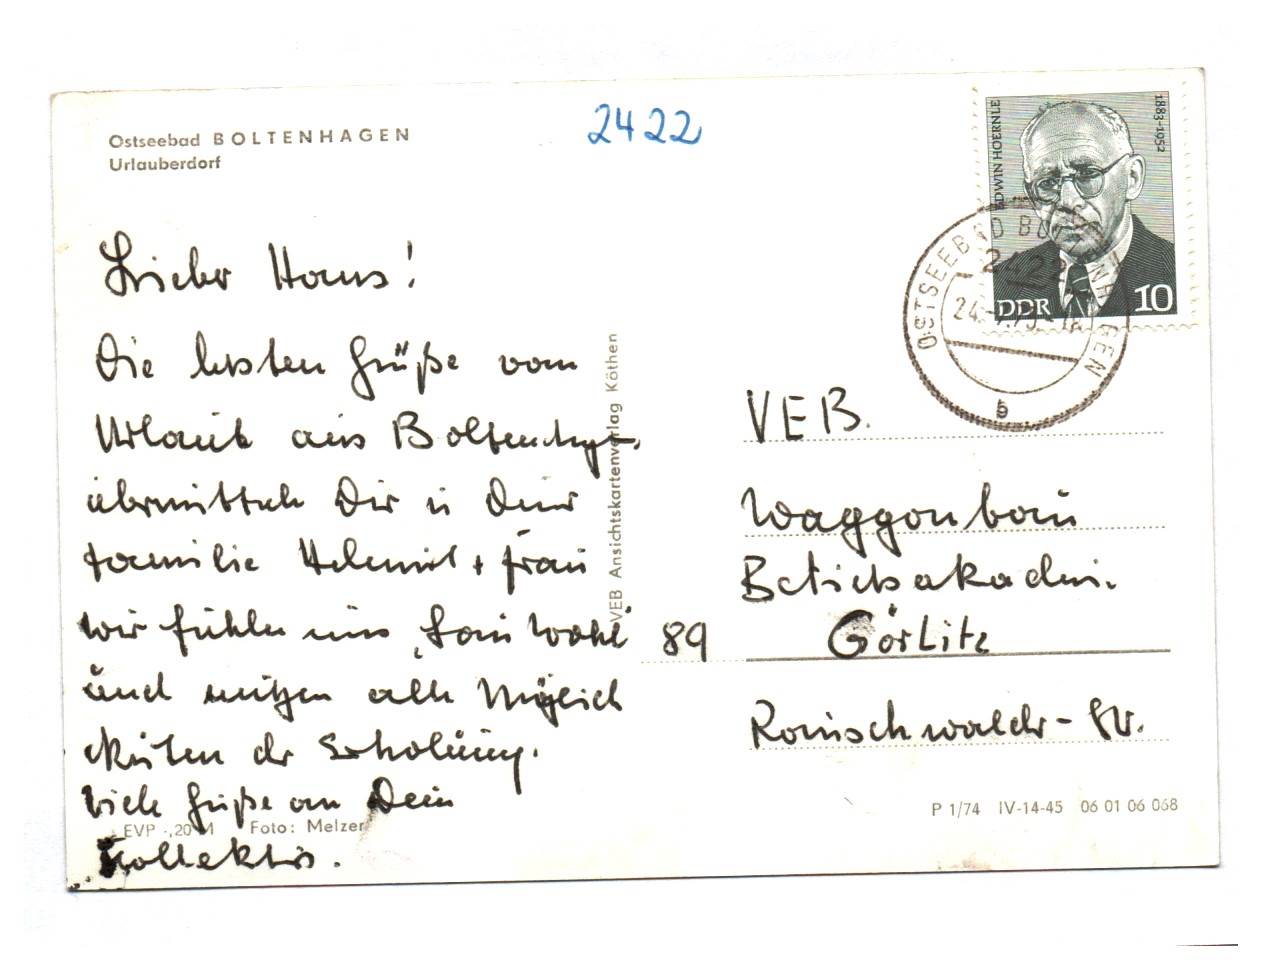 Ostseebad BOLTENHAGEN
Urlauberdorf
2422
EDWIN HOERNLE
1883-1952
DDR 10
OSTSEEBAD BOLTENHAGEN
2422
24.
b
Lieber Hans!
Die letzten Grüße vom
Urlaub aus Boltenhgn.
übermitteln Dir u Deiner
Familie Helmut + Frau
wir fühlen uns "Sau Wohl"
und nutzen alle Möglich
keiten der Erholung.
Viele Grüße an Dein
Kollektiv.
EVP -,20 M Foto: Melzer
VEB Ansichtskartenverlag Köthen
VEB.
Waggonbau
Betriebsakademi.
89 Görlitz
Rauschwalder-Str.
P 1/74 IV-14-45 06 01 06 068